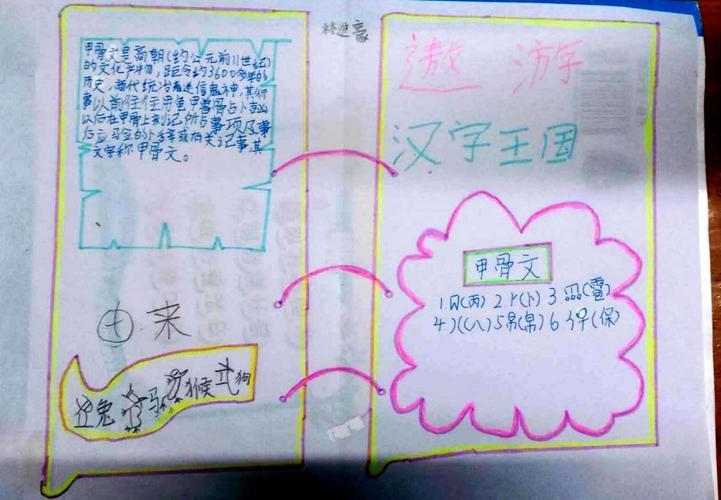 林进豪
甲骨文是商朝(约公元前11世纪)
的文化产物,距今约3600多年的
历史,商代统治者迷信鬼神,其行
事以前往往用龟甲兽骨占卜吉凶
以后在甲骨上刻记所占事项及事
后应的卜辞或有关记事其
文字称甲骨文。
由来
兔 马 猴 狗
遨游
汉字王国
甲骨文
1. (丙) 2. (卜) 3. (雹)
4. (八) 5. (帛) 6. (保)